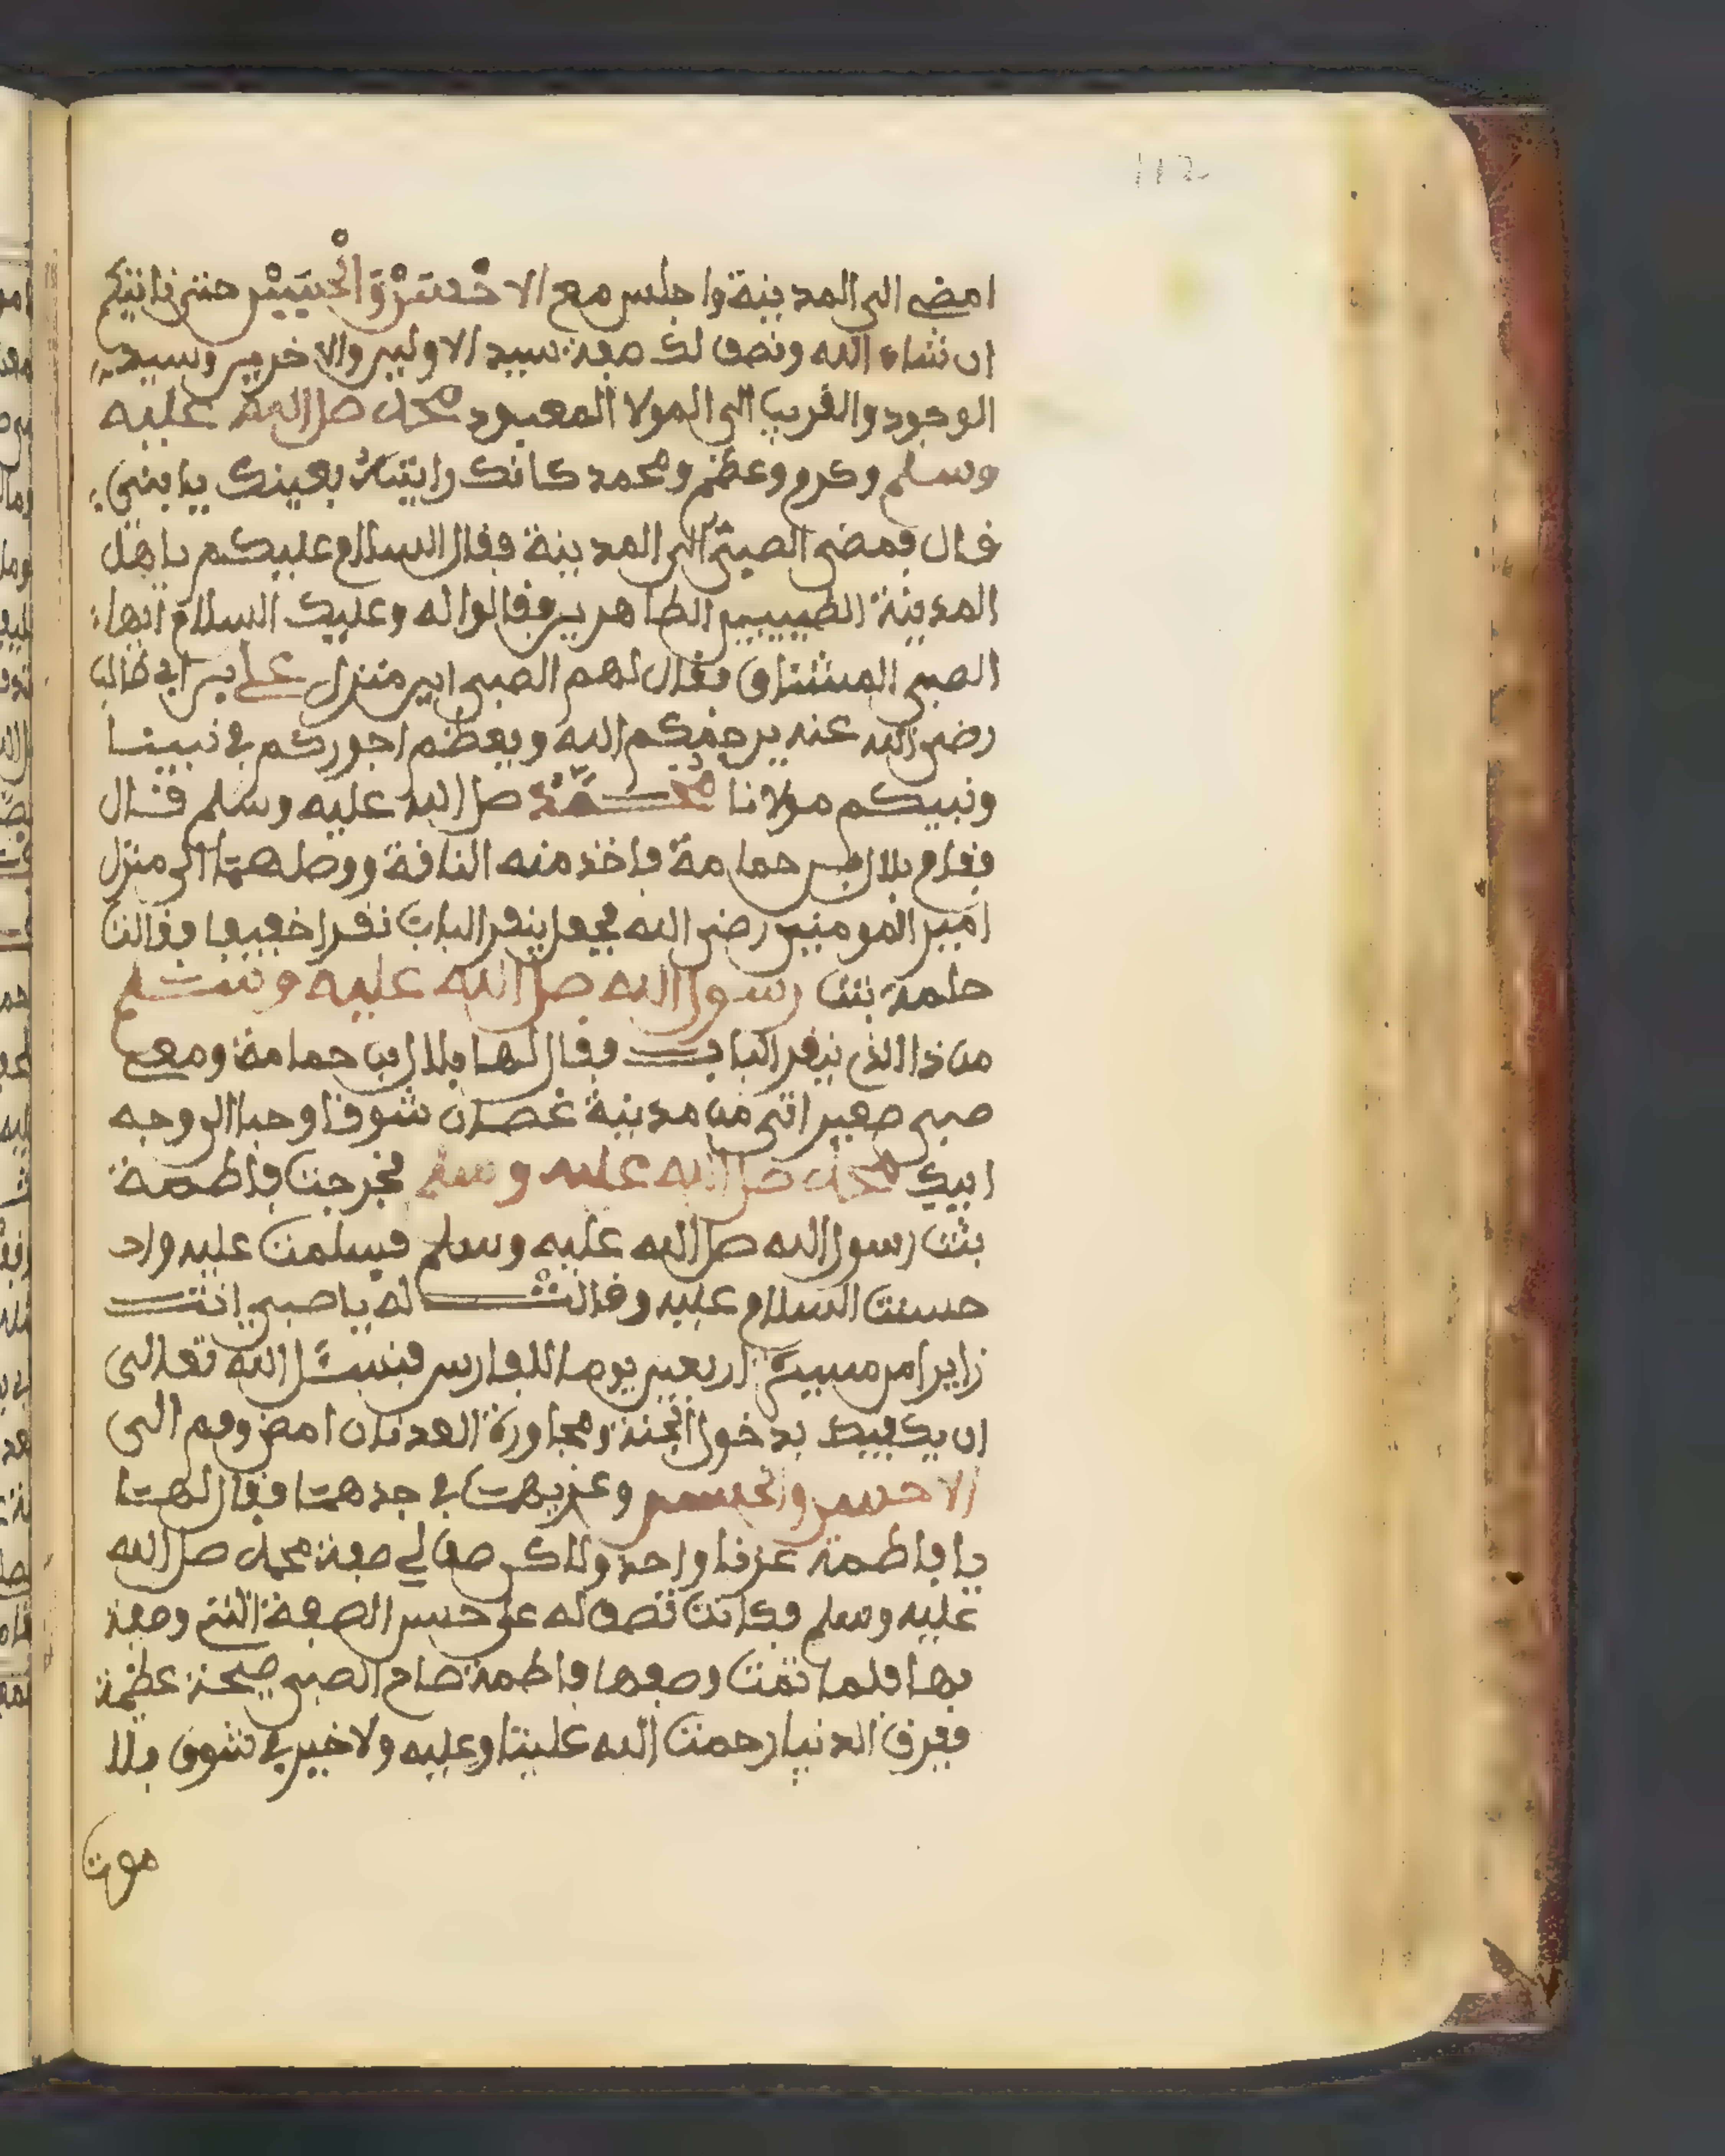 112
امضى الى المدينة واجلس مع الاحسن والحسين حتى ناتيكم
ان شاء الله ونصف لك صفة سيد الاولين والاخرين وسيد
الوجود والقريب الى المولا المعبود محمد صلى الله عليه
وسلم وكرم وعظم ومحمد كانك رايته بعينك يا بني
قال فمضى الصبي الى المدينة فقال السلام عليكم يا هل
المدينة الطيبين الطاهرين فقالوا له وعليك السلام ايها
الصبي المشتاق فقال لهم الصبي اين منزل علي بن ابي طالب
رضي الله عنه يرحمكم الله ويعظم اجوركم في نبينا
ونبيكم مولانا محمد صلى الله عليه وسلم قال
فقام بلال بن حمامة فاخذ منه الناقة ووصلهما الى منزل
امير المومنين رضي الله فجعل ينقر الباب نقرا خفيفا فقالت
طمة بنت رسول الله صلى الله عليه وسلم
من ذا الذي ينقر الباب فقال لها بلال بن حمامة ومعي
صبي صغير اتى من مدينة غصان شوقا وحبا الى وجه
ابيك محمد صلى الله عليه وسلم فخرجت فاطمة
بنت رسول الله صلى الله عليه وسلم فسلمت عليه واح
حسنت السلام عليه وقالت له يا صبي انت
زايرا من مسيرة اربعين يوما للفارس فنسئل الله تعالى
ان يكفيك بدخول الجنة ومجاورة العدنان امض وقم الى
الاحسن والحسين وعزيهما في جدهما فقال لها
يا فاطمة عزنا واحد ولاكن صف لي صفة محمد صلى الله
عليه وسلم فكانت تصف له على حسن الصفة التي وصفه
بها فلما تمت وصفها فاطمة صاح الصبي صيحة عظيمة
ففرق الدنيا رحمت الله علينا وعليه ولا خير في شوق بلا
موت